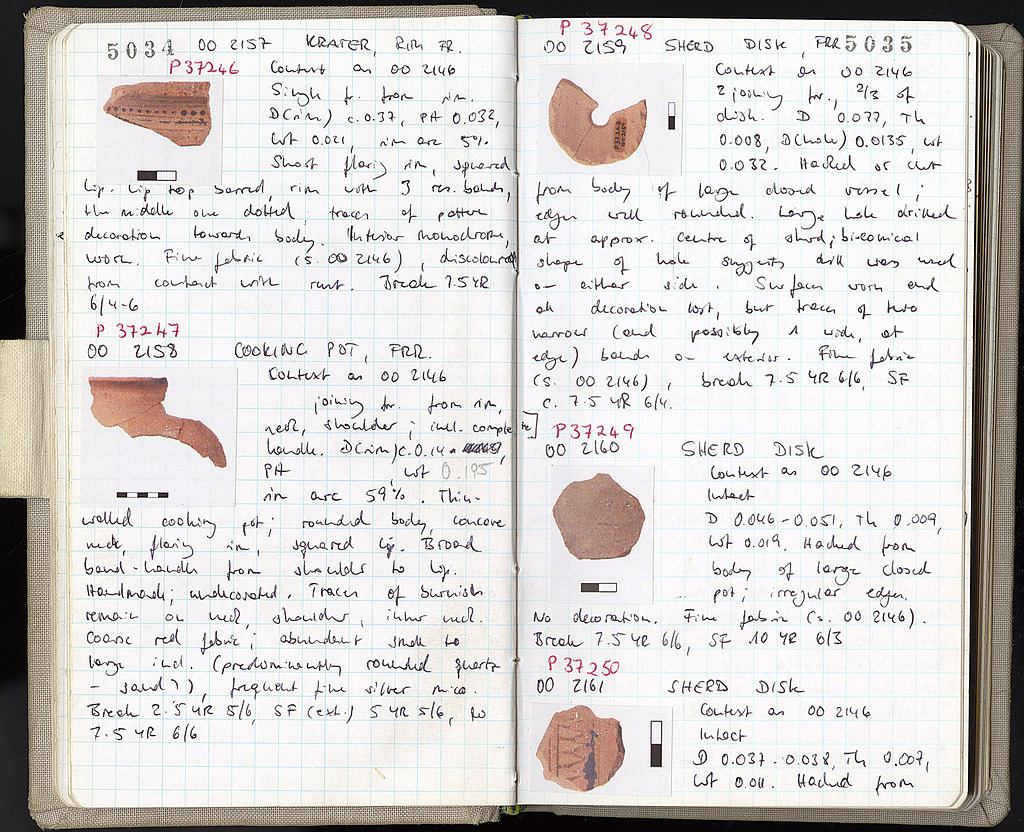 5034 OO 2157 KRATER, RIM FR.
P37246 Context as OO 2146
Single fr. from rim.
D(rim) c.0.37, PH 0.032,
Wt 0.021, rim arc 5%.
Short flaring rim, squared
lip. Lip top barred, rim with 3 res. bands,
the middle one dotted; traces of pattern
decoration towards body. Interior monochrome,
worn. Fine fabric (s. OO 2146), discoloured
from contact with rust. Break 7.5 YR
6/4-6
P 37247
OO 2158 COOKING POT, FRR.
Context as OO 2146
joining fr. from rim,
neck, shoulder; incl. complete
handle. D(rim) c. 0.14
PH , Wt 0.195
rim arc 59%. Thin-
walled cooking pot; rounded body, concave
neck, flaring rim, squared lip. Broad
band-handle from shoulder to lip.
Handmade; undecorated. Traces of burnish
remain on neck, shoulder, inner neck.
Coarse red fabric; abundant small to
large incl. (predominantly rounded quartz
- sand?), frequent fine silver mica.
Break 2.5 YR 5/6, SF (ext.) 5 YR 5/6, to
7.5 YR 6/6
P 37248
OO 2159 SHERD DISK, FRR 5035
Context as OO 2146
2 joining fr., 2/3 of
disk. D 0.077, Th
0.008, D(hole) 0.0135, Wt
0.032. Hacked or cut
from body of large closed vessel;
edges well rounded. Large hole drilled
at approx. centre of sherd; biconical
shape of hole suggests drill was used
on either side. Surface worn and
all decoration lost, but traces of two
narrow (and possibly 1 wide, at
edge) bands on exterior. Fine fabric
(s. OO 2146), break 7.5 YR 6/6, SF
c. 7.5 YR 6/4.
P 37249
OO 2160 SHERD DISK
Context as OO 2146
Intact
D 0.046-0.051, Th 0.009,
Wt 0.019. Hacked from
body of large closed
pot; irregular edges.
No decoration. Fine fabric (s. OO 2146).
Break 7.5 YR 6/6, SF 10 YR 6/3
P 37250
OO 2161 SHERD DISK
Context as OO 2146
Intact
D 0.037-0.038, Th 0.007,
Wt 0.011. Hacked from